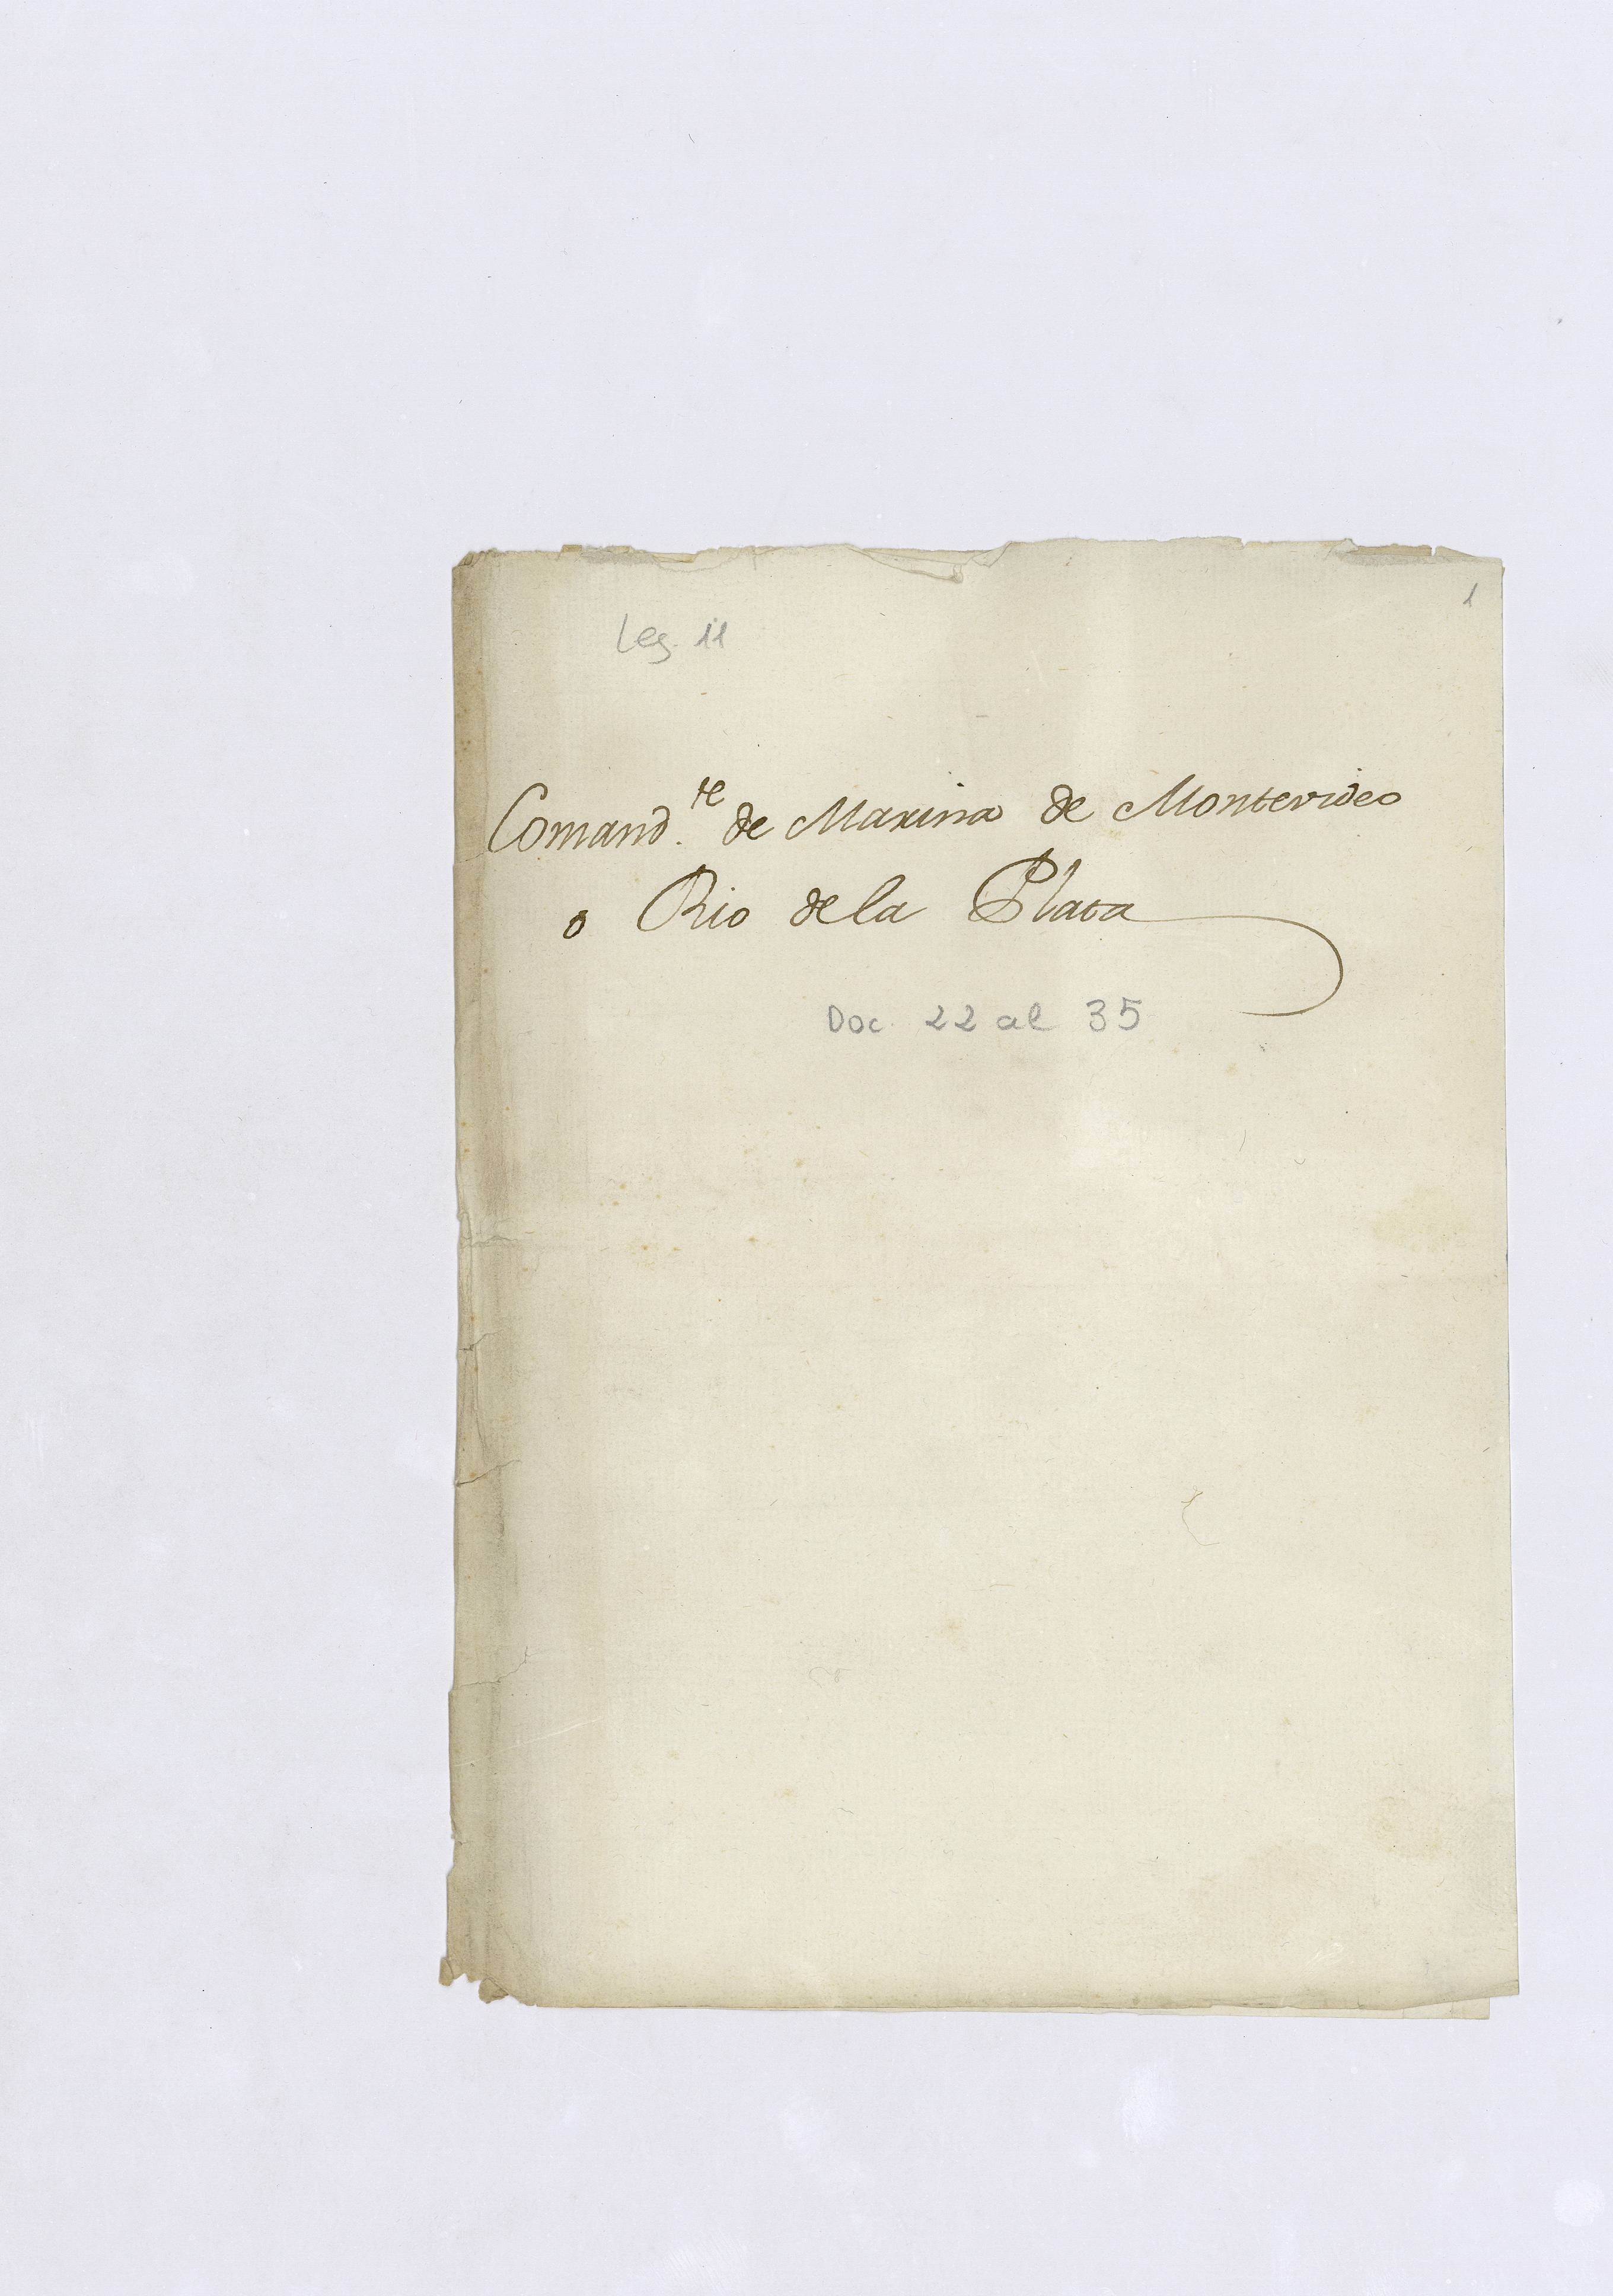 1
Leg. 11
Comand.te de Marina de Montevideo
o Rio de la Plata
Doc. 22 al 35